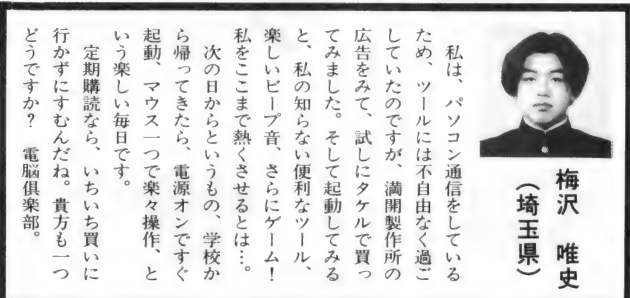 梅沢　唯史
（埼玉県）
　私は、パソコン通信をしている
ため、ツールには不自由なく過ご
していたのですが、満開製作所の
広告をみて、試しにタケルで買っ
てみました。そして起動してみる
と、私の知らない便利なツール、
楽しいビープ音、さらにゲーム！
私をここまで熱くさせるとは…。
　次の日からというもの、学校か
ら帰ってきたら、電源オンですぐ
起動、マウス一つで楽々操作、と
いう楽しい毎日です。
　定期購読なら、いちいち買いに
行かずにすむんだね。貴方も一つ
どうですか？　電脳倶楽部。